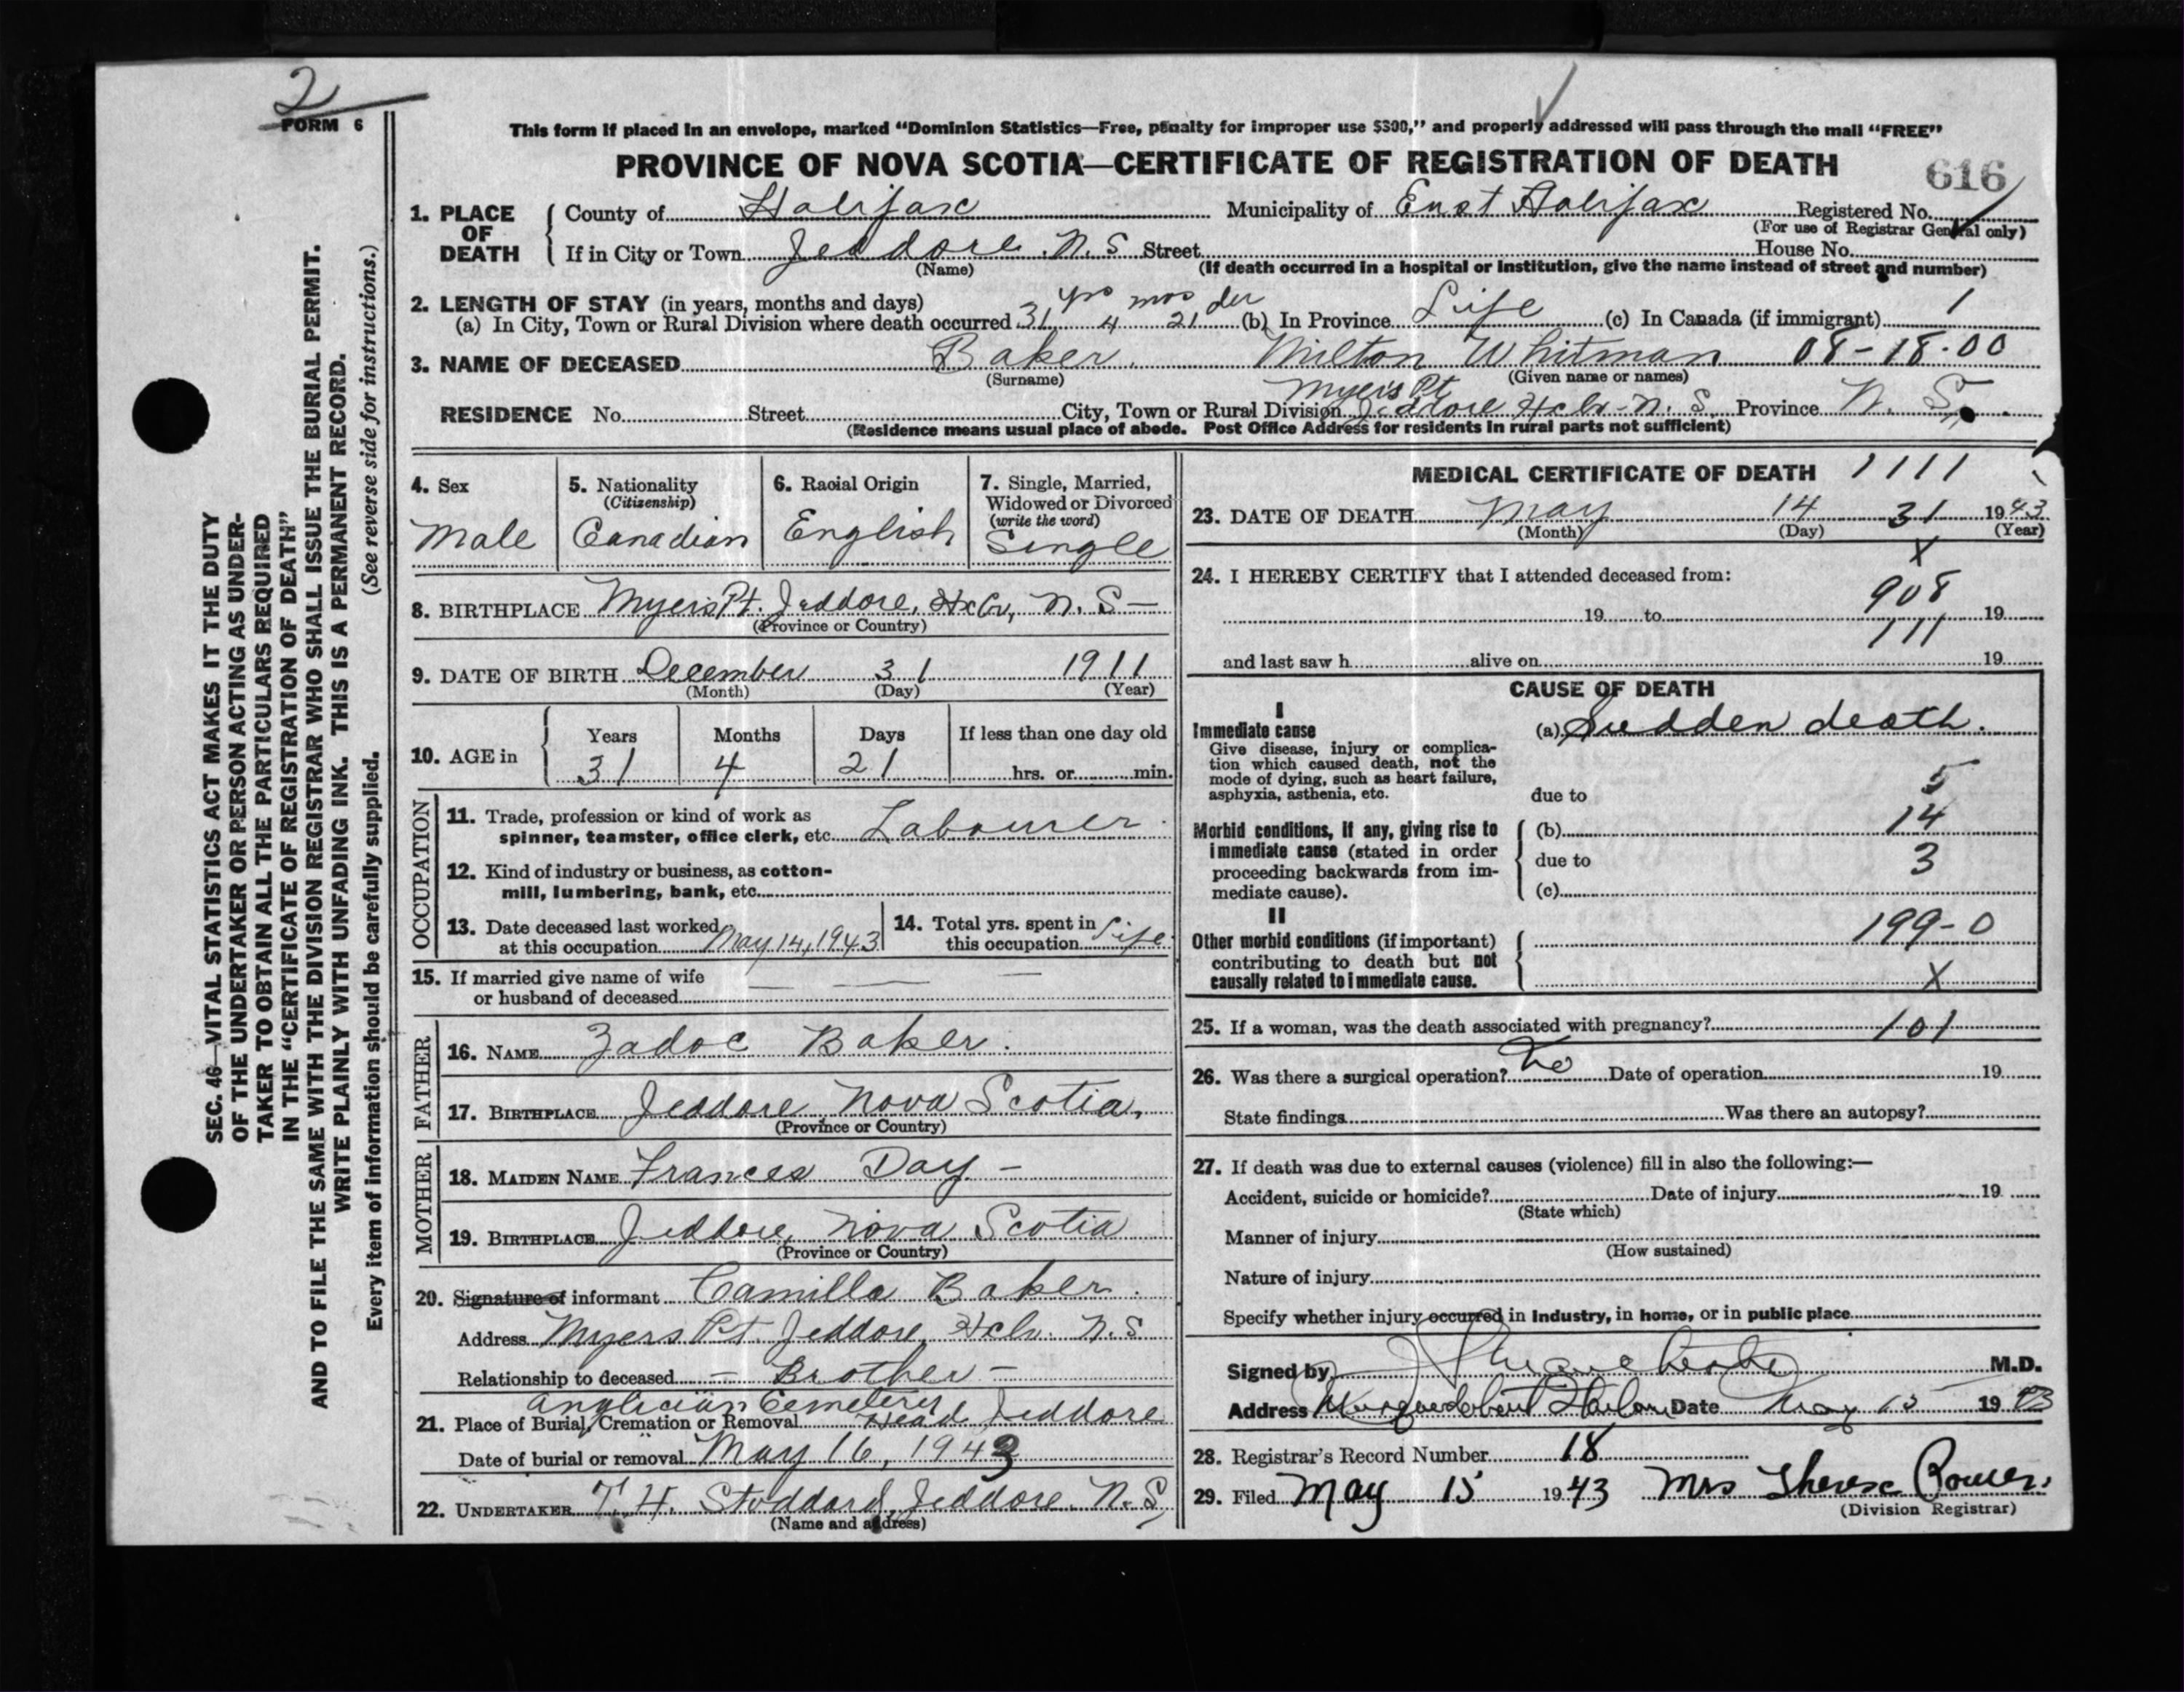 2
FORM 6
This form if placed in an envelope, marked "Dominion Statistics—Free, penalty for improper use $300," and properly addressed will pass through the mail "FREE"
PROVINCE OF NOVA SCOTIA—CERTIFICATE OF REGISTRATION OF DEATH
616
1. PLACE OF DEATH
County of Halifax Municipality of East Halifax Registered No.
(For use of Registrar General only)
If in City or Town Jeddore N.S Street House No.
(Name) (If death occurred in a hospital or institution, give the name instead of street and number)
2. LENGTH OF STAY (in years, months and days)
(a) In City, Town or Rural Division where death occurred 31 yrs 4 mos 21 (b) In Province Life (c) In Canada (if immigrant) 1
3. NAME OF DECEASED Baker, Milton Whitman 08-18-00
(Surname) (Given name or names)
Myers Pt
RESIDENCE No. Street City, Town or Rural Division Jeddore N. S. Province N. S.
(Residence means usual place of abode. Post Office Address for residents in rural parts not sufficient)
4. Sex
Male
5. Nationality
(Citizenship)
Canadian
6. Racial Origin
English
7. Single, Married,
Widowed or Divorced
(write the word)
Single
8. BIRTHPLACE Myers Pt. Jeddore, N. S—
(Province or Country)
9. DATE OF BIRTH December 31 1911
(Month) (Day) (Year)
10. AGE in
Years Months Days If less than one day old
31 4 21 hrs. or min.
OCCUPATION
11. Trade, profession or kind of work as
spinner, teamster, office clerk, etc. Labourer
12. Kind of industry or business, as cotton-
mill, lumbering, bank, etc.
13. Date deceased last worked
at this occupation May 14, 1943
14. Total yrs. spent in
this occupation Life
15. If married give name of wife
or husband of deceased
FATHER
16. NAME Zadoc Baker.
17. BIRTHPLACE Jeddore, Nova Scotia,
(Province or Country)
MOTHER
18. MAIDEN NAME Frances Day —
19. BIRTHPLACE Jeddore, Nova Scotia
(Province or Country)
20. Signature of informant Camilla Baker.
Address Myers Pt. Jeddore, N.S
Relationship to deceased — Brother —
Anglician Cemetery
21. Place of Burial, Cremation or Removal Head Jeddore
Date of burial or removal May 16, 1943
22. UNDERTAKER T. H. Stoddard, Jeddore, N.S
(Name and address)
MEDICAL CERTIFICATE OF DEATH 1111
23. DATE OF DEATH May 14 31 1943
(Month) (Day) (Year)
X
24. I HEREBY CERTIFY that I attended deceased from:
908
19 to 19
111
and last saw h alive on 19
CAUSE OF DEATH
I
Immediate cause (a) Sudden death.
Give disease, injury or complica-
tion which caused death, not the
mode of dying, such as heart failure,
asphyxia, asthenia, etc.
due to 5
Morbid conditions, if any, giving rise to
immediate cause (stated in order
proceeding backwards from im-
mediate cause).
(b) 14
due to 3
(c)
II
Other morbid conditions (if important)
contributing to death but not
causally related to immediate cause.
199-0
X
25. If a woman, was the death associated with pregnancy? 101
26. Was there a surgical operation? No Date of operation 19
State findings Was there an autopsy?
27. If death was due to external causes (violence) fill in also the following:—
Accident, suicide or homicide? Date of injury 19
(State which)
Manner of injury
(How sustained)
Nature of injury
Specify whether injury occurred in industry, in home, or in public place
Signed by M.D.
Address Musquodoboit Harbour Date May 15 1943
28. Registrar's Record Number 18
29. Filed May 15 1943 Mrs Therese
(Division Registrar)
SEC. 46—VITAL STATISTICS ACT MAKES IT THE DUTY
OF THE UNDERTAKER OR PERSON ACTING AS UNDER-
TAKER TO OBTAIN ALL THE PARTICULARS REQUIRED
IN THE "CERTIFICATE OF REGISTRATION OF DEATH"
AND TO FILE THE SAME WITH THE DIVISION REGISTRAR WHO SHALL ISSUE THE BURIAL PERMIT.
WRITE PLAINLY WITH UNFADING INK. THIS IS A PERMANENT RECORD.
Every item of information should be carefully supplied. (See reverse side for instructions.)